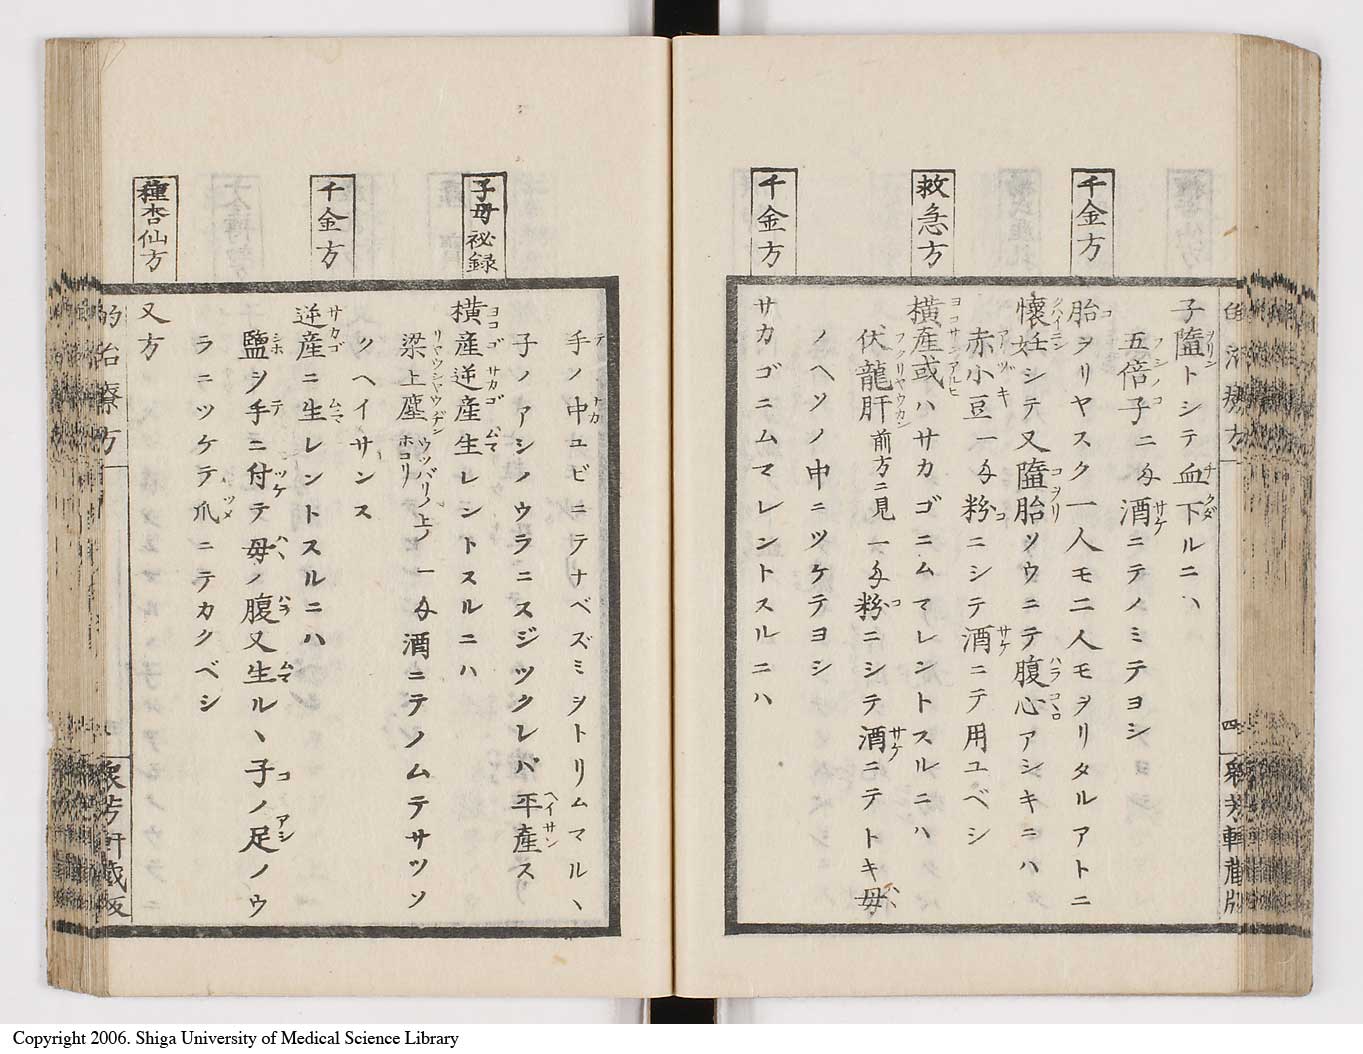 千金方
救急方
千金方
子隨トシテ血下ルニハ
五倍子ニ匁酒ニテノミテヨシ
胎ヲリヤスク一人モ二人モヲリタルアトニ
懐妊シテ又隨胎ツウニテ腹心アシキニハ
赤小豆一匁粉ニシテ酒ニテ用ユベシ
横産或ハサカゴニムマレントスルニハ
伏龍肝前方ニ見一匁粉ニシテ酒ニテトキ母
ノヘソノ中ニツケテヨシ
サカゴニムマレントスルニハ
四
子母秘録
千金方
種杏仙方
手ノ中ユビニテナベズミヲトリムマルヽ
子ノアシノウラニスジツクレバ平産ス
横産逆産生レントスルニハ
梁上塵ウツバリノ上ノホコリ一匁酒ニテノムテサツソ
クヘイサンス
逆産ニ生レントスルニハ
鹽ヲ手ニ付テ母ノ腹又生ルヽ子ノ足ノウ
ラニツケテ爪ニテカクベシ
又方
的治療方一
衆芳軒蔵板
Copyright 2006. Shiga University of Medical Science Library